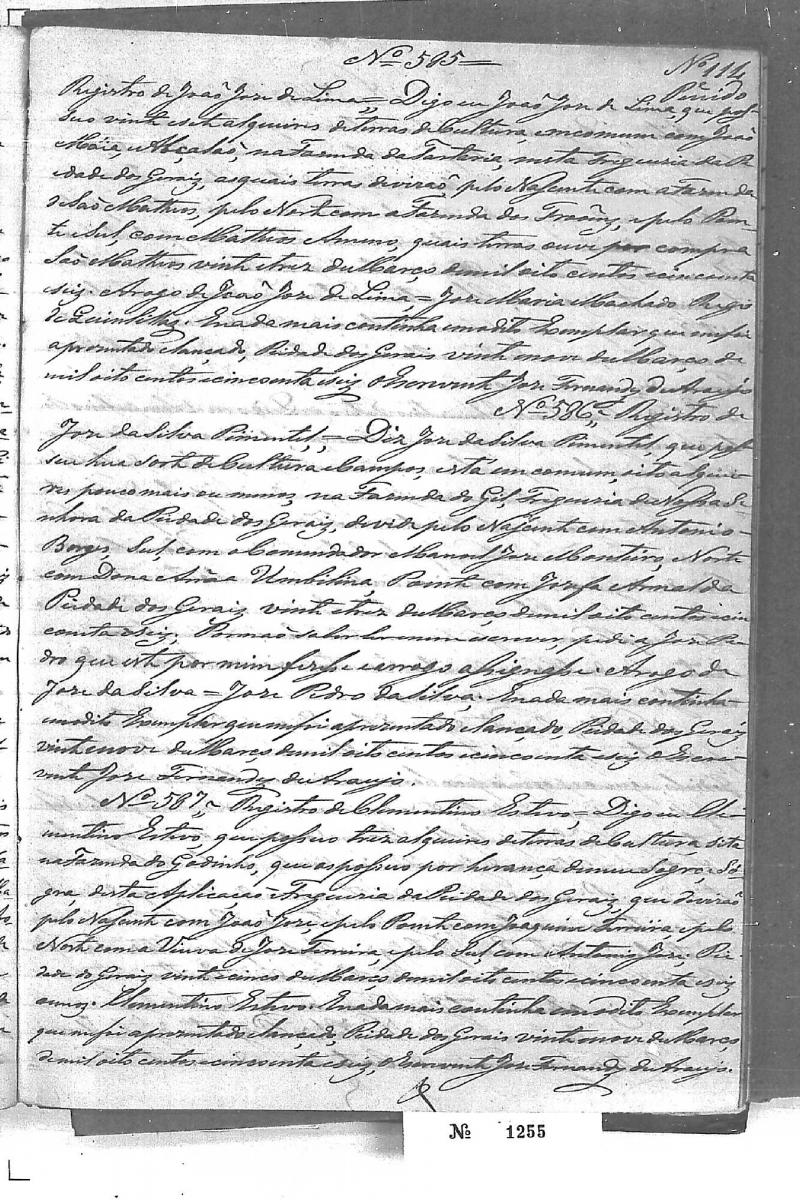 Nº 585=
Nº 114
Registro de João Joze de Lima = Digo eu João Joze de Lima, que pos-
suo vinte e sete alqueires de terras de Cultura, em comum com João
Maia, e na Fazenda da Tartaria, nesta Freguezia da Pi-
edade dos Geraiz, as quais terras divizaõ pelo Nascente com a Fazenda
de São Matheos, pelo Norte com a Fazenda dos e pelo Poen-
te e Sul, com Matheos quais terras ouve por compra
São Matheos vinte e trez de Março de mil oito centos e cincoenta
e seiz. Arogo de João Joze de Lima = Joze Maria Machado
de E nada mais continha em o dito Exemplar, que me foi
aprezentado e lançado, Piedade dos Gerais vinte nove de Março de
mil oito centos e cincoenta e seiz. O Escrevente Joze Fernandez de Araujo
Nº 586 = Registro de
Joze da Silva Pimentel, = Diz Joze da Silva Pimentel, que pos-
sue hua sorte de Cultura e Campos, está em comum, oito alquei-
res pouco mais ou menos, na Fazenda do Gil, Freguezia da Nossa Se-
nhora da Piedade dos Geraiz, devide pelo Nascente com Antonio
Borges, Sul, com o Comendador Manoel Joze Monteiro, Norte
com Dona Anna Umbilina, Poente com Jozefa Arnalda
Piedade dos Geraiz vinte e trez de Março de mil oito centos e cin-
coenta e seiz. Por não saber ler nem escrever, pedi a Joze Pe-
dro que este por mim fizesse e arrogo assignasse. Arogo de
Joze da Silva = Joze Pedro da Silva. E nada mais continha
em o dito Exemplar que me foi aprezentado e lançado Piedade dos Geraiz
vinte e nove de Março de mil oito centos e cincoenta e seiz O Escre-
vente Joze Fernandez de Araujo.
Nº 587 = Registro de Clementino Estevo, = Digo eu Cle-
mentino Estevo, que possuo trez alqueires de terras de Cultura, sita
na Fazenda do Godinho, que as possuo por herança de meu Sogro e So-
gra, desta Aplicação e Freguezia da Piedade dos Geraiz, que divizaõ
pelo Nascente com João Joze e pelo Poente com Joaquim Ferreira e pelo
Norte com a Viuva de Joze Ferreira, e pelo Sul, com Antonio Joze, Pie-
dade dos Geraiz vinte e cinco de Março de mil oito centos e cincoenta e seiz
annos. Clementino Estevo. E nada mais continha em o dito Exemplar
que me foi aprezentado e lançado, Piedade dos Gerais vinte nove de Março
de mil oito centos e cincoenta e seiz, O Escrevente Joze Fernandez de Araujo.
Nº 1255